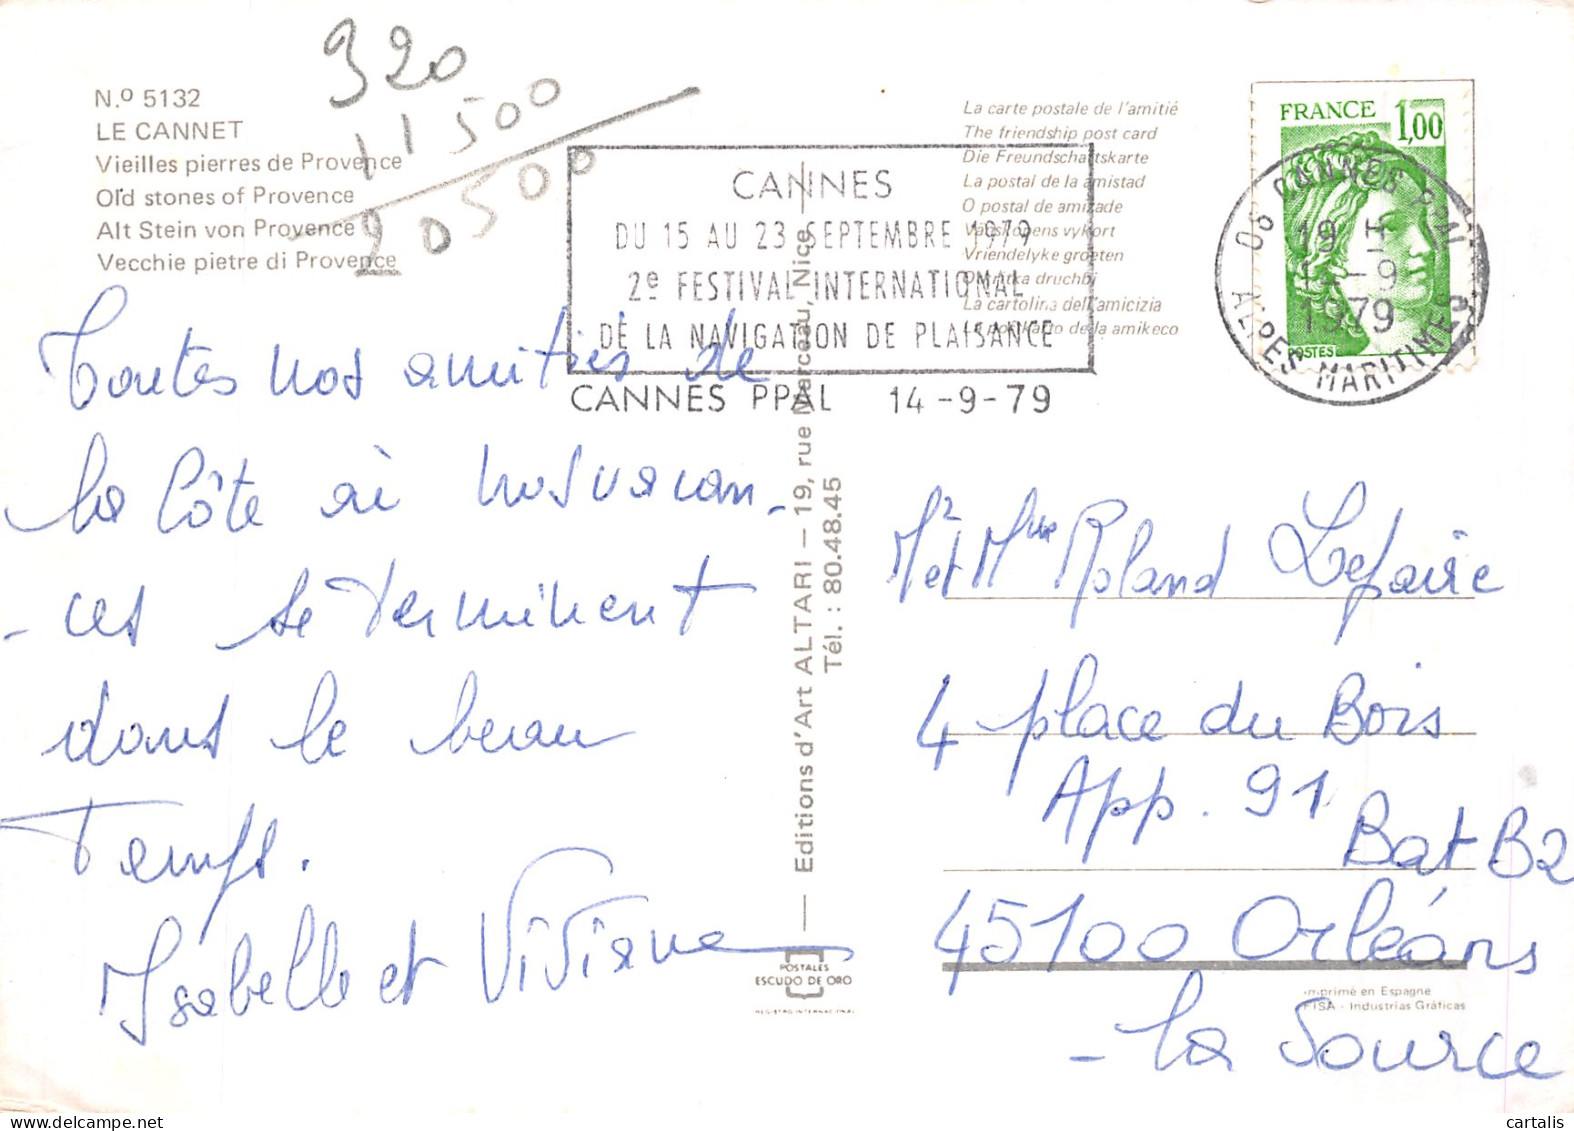 N.º 5132
LE CANNET
Vieilles pierres de Provence
Old stones of Provence
Alt Stein von Provence
Vecchie pietre di Provence
320
11500
20500
La carte postale de l'amitié
The friendship post card
Die Freundschaftskarte
La postal de la amistad
O postal de amizade
Vänskapens vykort
Vriendelyke groeten
La cartolina dell'amicizia
La poŝtkarto de la amikeco
CANNES
DU 15 AU 23 SEPTEMBRE 1979
2e FESTIVAL INTERNATIONAL
DE LA NAVIGATION DE PLAISANCE
CANNES PPAL 14-9-79
FRANCE 1,00
POSTES
06 CANNES PPAL
19 H
14-9
1979
ALPES MARITIMES
Toutes nos amitiés de
la Côte où nos vacan-
-ces se terminent
dans le beau
temps.
Isabelle et Viviane
Editions d'Art ALTARI — 19, rue Marceau, Nice
Tél. : 80.48.45
POSTALES
ESCUDO DE ORO
REGISTRO INTERNACIONAL
Mr et Mme Roland Lefaire
4 place du Bois
App. 91
Bat B2
45100 Orléans
-la Source
Imprimé en Espagne
FISA - Industrias Gráficas
cartalis